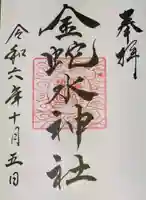 奉拝
金蛇水神社
令和六年十月五日